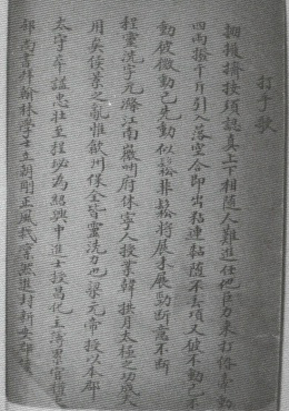 打手歌
掤握擠按須認真上下相隨人難進任他巨力來打係牽動
四兩撥千斤引入落空合即出粘連黏随不丢項又彼不動己不
動彼微動己先動似鬆非鬆將展未展勁斷意不断
程靈洗字元滌江南徽州府休寧人授業韓拱月太極之功成大
用矣侯景之亂惟歙州保全皆靈洗力也梁元帝授以本郡
太守卒諡忠壯至程珌為紹興中進士授昌化主簿累官
部尚書拜翰林學士立朝剛正風裁凜然進封新安郡